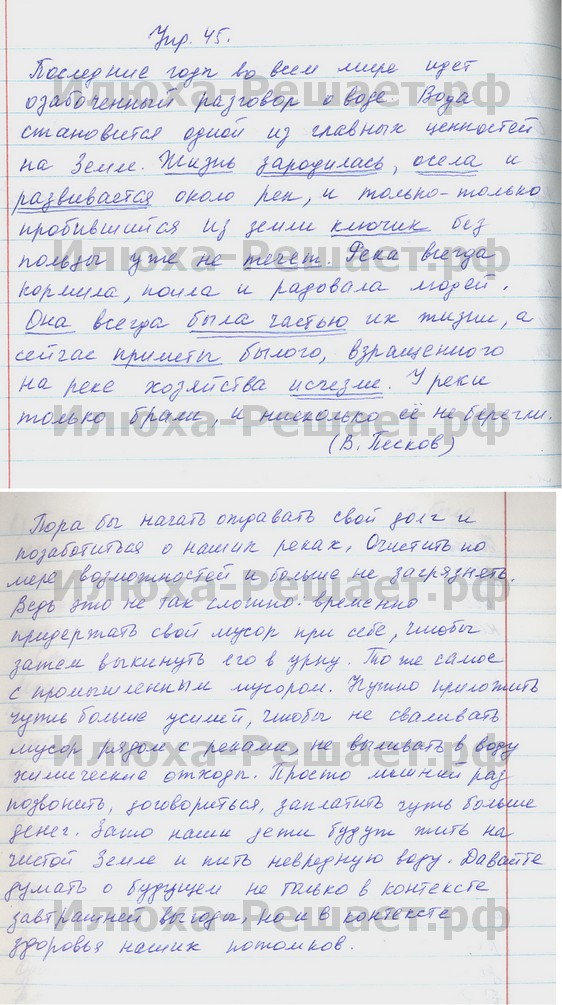 Упр. 45.
Последние годы во всем мире идет
озабоченный разговор о воде. Вода
становится одной из главных ценностей
на Земле. Жизнь зародилась, осела и
развивается около рек, и только-только
пробившийся из земли ключик без
пользы уже не течет. Река всегда
кормила, поила и радовала людей.
Она всегда была частью их жизни, а
сейчас приметы былого, взращенного
на реке хозяйства исчезли. У реки
только брали, и нисколько её не берегли.
(В. Песков)
Пора бы начать отдавать свой долг и
позаботиться о наших реках. Очистить по
мере возможностей и больше не загрязнять.
Ведь это не так сложно: временно
придержать свой мусор при себе, чтобы
затем выкинуть его в урну. То же самое
с промышленным мусором. Нужно приложить
чуть больше усилий, чтобы не сваливать
мусор рядом с реками, не выливать в воду
химические отходы. Просто лишний раз
позвонить, договориться, заплатить чуть больше
денег. Зато наши дети будут жить на
чистой Земле и пить невредную воду. Давайте
думать о будущем не только в контексте
завтрашней выгоды, но и в контексте
здоровья наших потомков.
Илюха-Решает.рф
Илюха-Решает.рф
Илюха-Решает.рф
Илюха-Решает.рф
Илюха-Решает.рф
Илюха-Решает.рф